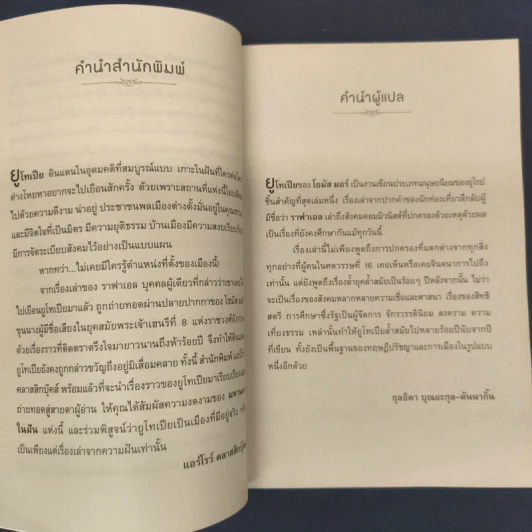 คำนำสำนักพิมพ์
ยูโทเปีย ดินแดนในอุดมคติที่สมบูรณ์แบบ เกาะในฝันที่ใคร
ต่างใคร่อยากจะไปเยือนสักครั้ง ด้วยเพราะสถานที่แห่งนี้
ไปด้วยความดีงาม น่าอยู่ ประชาชนพลเมืองต่างตั้งมั่นอยู่ใน
และมีจิตใจที่เป็นมิตร มีความยุติธรรม บ้านเมืองมีความสงบเรียบ
มีการจัดระเบียบสังคมไว้อย่างเป็นแบบแผน
หากทว่า...ไม่เคยมีใครรู้ตำแหน่งที่ตั้งของเมืองนี้!
จากเรื่องเล่าของ ราฟาเอล บุคคลผู้เดียวที่กล่าวว่าเขา
ไปเยือนยูโทเปียมาแล้ว ถูกถ่ายทอดผ่านปลายปากกาของ โธมัส
ขุนนางผู้มีชื่อเสียงในยุคสมัยพระเจ้าเฮนรีที่ 8 แห่งราชวงศ์
ด้วยเรื่องราวที่ติดตราตรึงใจมายาวนานถึงห้าร้อยปี จึงทำให้
ยูโทเปียยังคงถูกกล่าวขวัญถึงอยู่มิเสื่อมคลาย ทั้งนี้ สำนักพิมพ์
คลาสสิกบุ๊คส์ พร้อมแล้วที่จะนำเรื่องราวของยูโทเปียมาเรียบเรียง
ถ่ายทอดสู่สายตาผู้อ่าน ให้คุณได้สัมผัสความงดงามของ
ในฝัน แห่งนี้ และร่วมพิสูจน์ว่ายูโทเปียเป็นเมืองที่มีอยู่จริง
เป็นเพียงแค่เรื่องเล่าจากความฝันเท่านั้น
แอร์โรว์ คลาสสิก
คำนำผู้แปล
ยูโทเปียของ โธมัส มอร์ เป็นงานเขียนประเภทมนุษยนิยมของยุโรป
ชิ้นสำคัญที่สุดเล่มหนึ่ง เรื่องเล่าจากปากคำของนักท่องเที่ยวลึกลับผู้
มีชื่อว่า ราฟาเอล เล่าถึงสังคมคอมมิวนิสต์ที่ปกครองด้วยเหตุด้วยผล
เป็นเรื่องที่ยังคงศึกษากันแม้ทุกวันนี้
เรื่องเล่านี้ไม่เพียงพูดถึงการปกครองที่แตกต่างจากทุกสิ่ง
ทุกอย่างที่ผู้คนในศตวรรษที่ 16 เคยเห็นหรือเคยจินตนาการไปถึง
เท่านั้น แต่ยังพูดถึงเรื่องล้ำยุคล้ำสมัยเป็นร้อยๆ ปีหลังจากนั้น ไม่ว่า
จะเป็นเรื่องของสังคมหลากหลายความเชื่อและศาสนา เรื่องของสิทธิ
สตรี การศึกษาซึ่งรัฐเป็นผู้จัดการ จักรวรรดินิยม สงคราม ความ
เที่ยงธรรม เหล่านั้นทำให้ยูโทเปียล้ำสมัยไปหลายร้อยปีนับจากปี
ที่เขียน ทั้งยังเป็นพื้นฐานของทฤษฎีปรัชญาและการเมืองในรูปแบบ
หนึ่งอีกด้วย
กุลธิดา บุณยะกุล-ดันนากิ้น